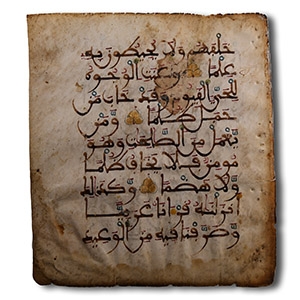 خلفهم ولا يحيطون به
علما وعنت الوجوه
للحي القيوم وقد خاب من
حمل ظلما ومن
يعمل من الصلحت وهو
مومن فلا يخاف ظلما
ولا هضما وكذلك
انزلنه قرانا عربيا
وصرفنا فيه من الوعيد